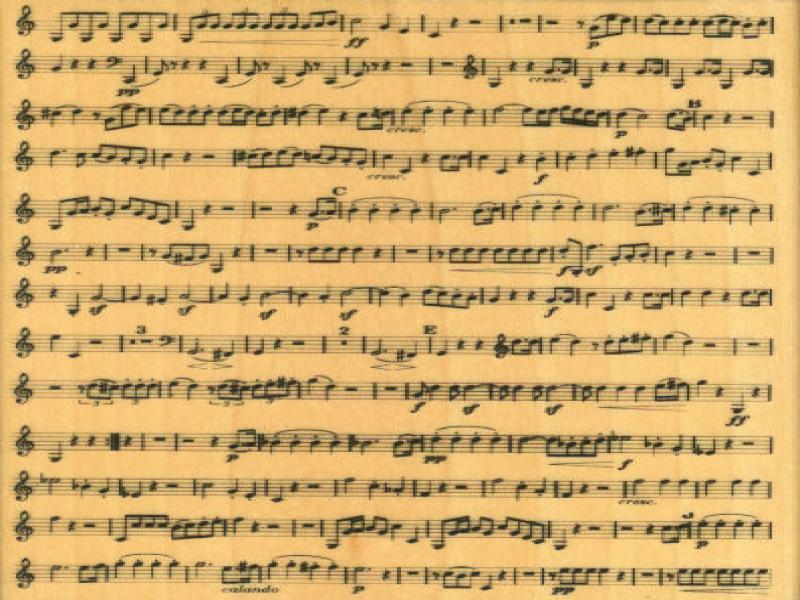 3 3 ff p
pp cresc.
cresc. p B
cresc. f
C p
pp f sf
sf sf sf sf f
3 2 E
3 3 3 3 f sf sf ff
p pp f
cresc.
3 p
calando p pp